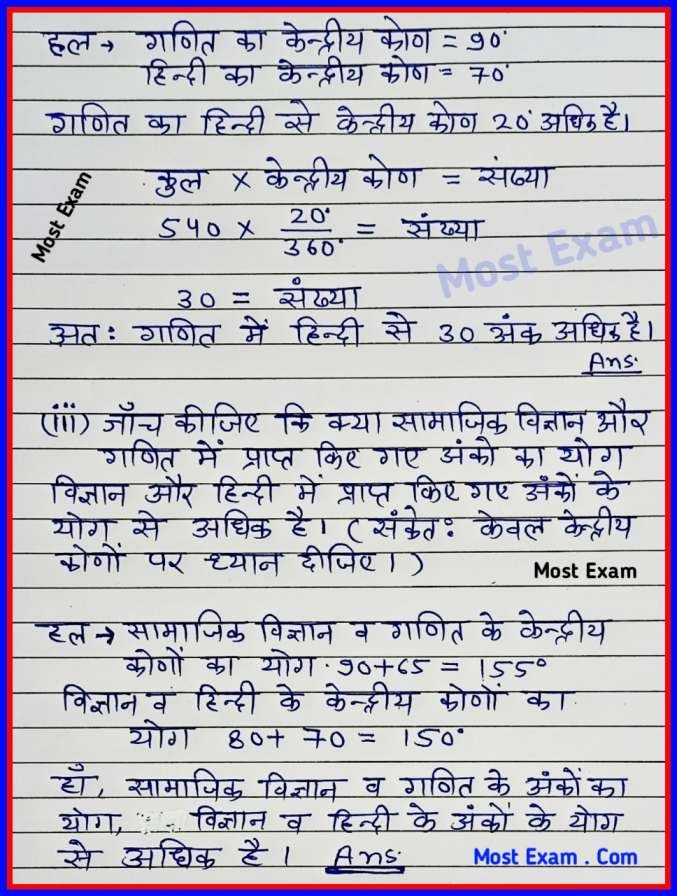 हल → गणित का केन्द्रीय कोण = 90°
हिन्दी का केन्द्रीय कोण = 70°
गणित का हिन्दी से केन्द्रीय कोण 20° अधिक है।
कुल × केन्द्रीय कोण = संख्या
Most Exam
540 × 20°/360° = संख्या
Most Exam
30 = संख्या
अतः गणित में हिन्दी से 30 अंक अधिक है।
Ans.
(iii) जाँच कीजिए कि क्या सामाजिक विज्ञान और
गणित में प्राप्त किए गए अंको का योग
विज्ञान और हिन्दी में प्राप्त किए गए अंकों के
योग से अधिक है। (संकेत: केवल केन्द्रीय
कोणों पर ध्यान दीजिए।)
Most Exam
हल → सामाजिक विज्ञान व गणित के केन्द्रीय
कोणों का योग · 90+65 = 155°
विज्ञान व हिन्दी के केन्द्रीय कोणों का
योग 80+ 70 = 150°
हाँ, सामाजिक विज्ञान व गणित के अंकों का
योग, विज्ञान व हिन्दी के अंकों के योग
से अधिक है। Ans.
Most Exam . Com